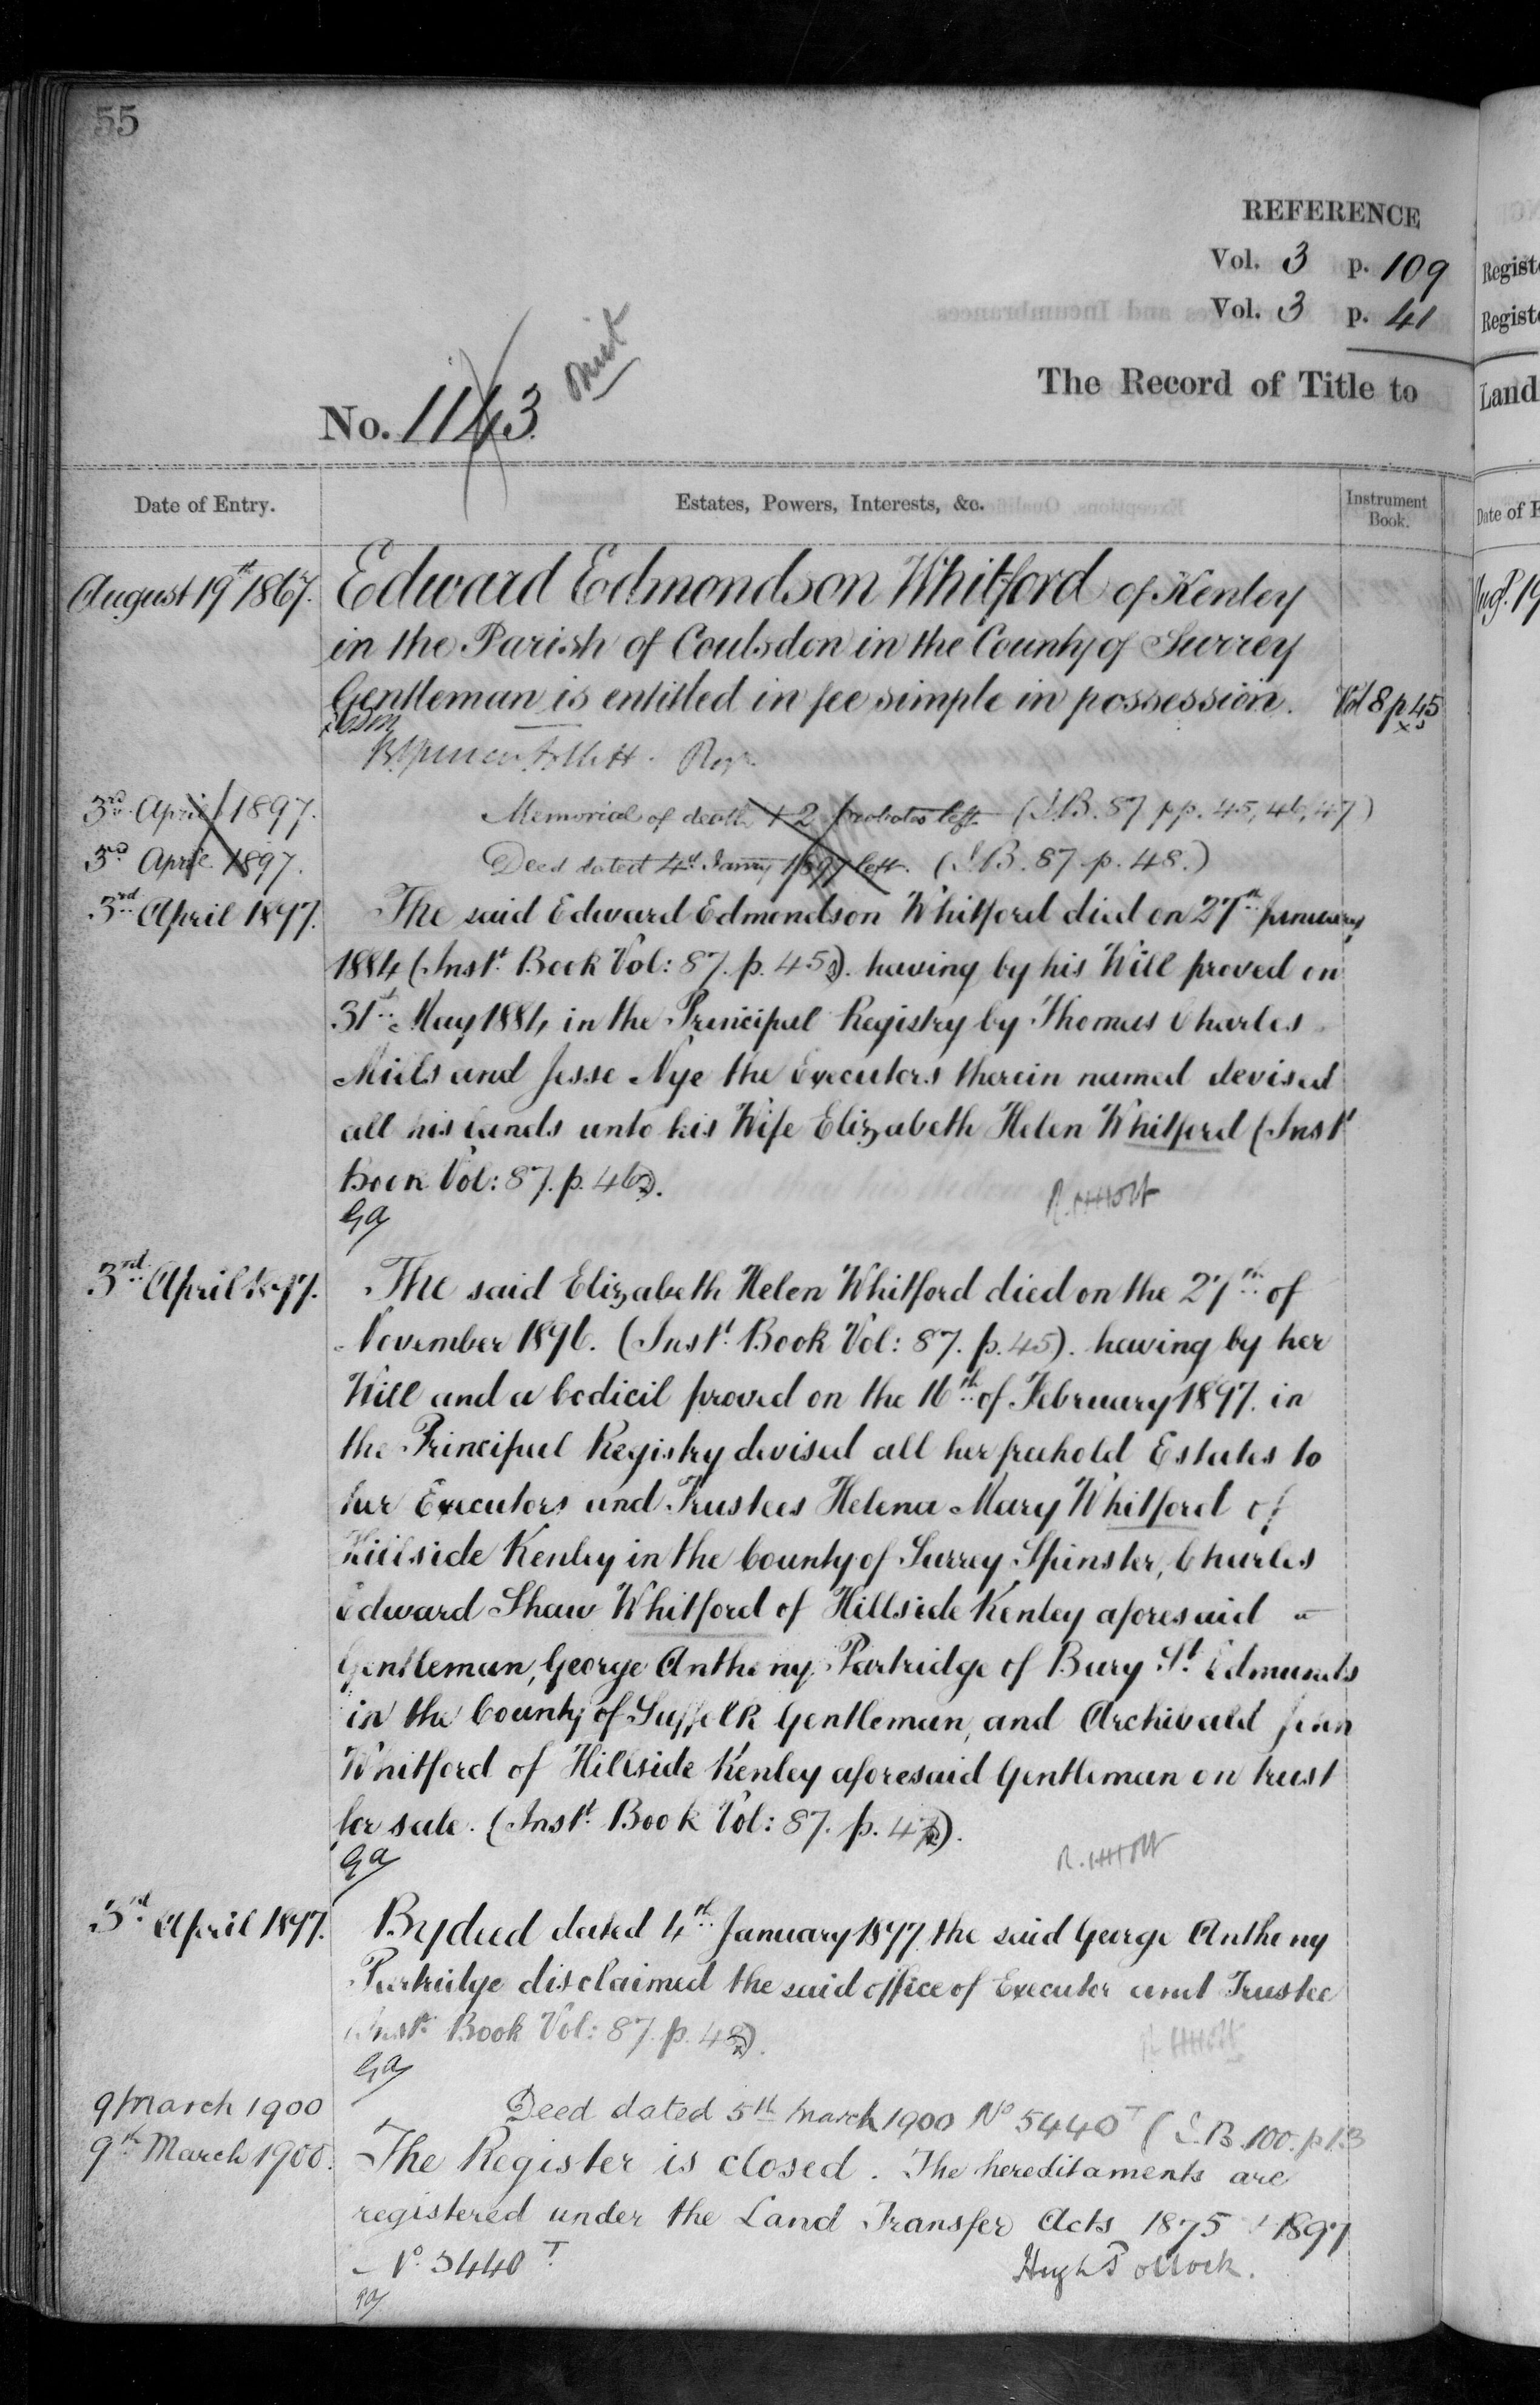 55
REFERENCE
Vol. 3 p. 109
Vol. 3 p. 41
The Record of Title to
No. 1143.
Date of Entry. Estates, Powers, Interests, &c. Instrument Book.
August 19th 1867. Edward Edmondson Whitford of Kenley
in the Parish of Coulsdon in the County of Surrey
Gentleman is entitled in fee simple in possession. Vol 8 p 45
3rd April 1897. Memorial of death + 2 probates left (I.B. 87 pp. 45, 46, 47)
3rd April 1897. Deed dated 4th Jany 1897 left. (I.B. 87. p. 48.)
3rd April 1897. The said Edward Edmondson Whitford died on 27th January
1884 (Inst. Book Vol: 87. p. 45). having by his Will proved on
31st May 1884 in the Principal Registry by Thomas Charles
Mills and Jesse Nye the Executors therein named devised
all his lands unto his Wife Elizabeth Helen Whitford (Inst
Book Vol: 87. p. 46).
Ga
3rd April 1897. The said Elizabeth Helen Whitford died on the 27th of
November 1896. (Inst. Book Vol: 87. p. 45). having by her
Will and a Codicil proved on the 16th of February 1897. in
the Principal Registry devised all her freehold Estates to
her Executors and Trustees Helena Mary Whitford of
Hillside Kenley in the County of Surrey Spinster, Charles
Edward Shaw Whitford of Hillside Kenley aforesaid
Gentleman, George Anthony Partridge of Bury St Edmunds
in the County of Suffolk Gentleman, and Archibald John
Whitford of Hillside Kenley aforesaid Gentleman on trust
for sale. (Inst. Book Vol: 87. p. 47).
Ga
3rd April 1897. By deed dated 4th January 1897 the said George Anthony
Partridge disclaimed the said office of Executor and Trustee
(Inst. Book Vol: 87. p. 48).
Ga
9 March 1900 Deed dated 5th March 1900 No 5440T (I.B. 100. p 13
9th March 1900. The Register is closed. The hereditaments are
registered under the Land Transfer Acts 1875 & 1897
No. 5440T
Hugh Pollock.
Ga
Registe
Registe
Land
Date of E